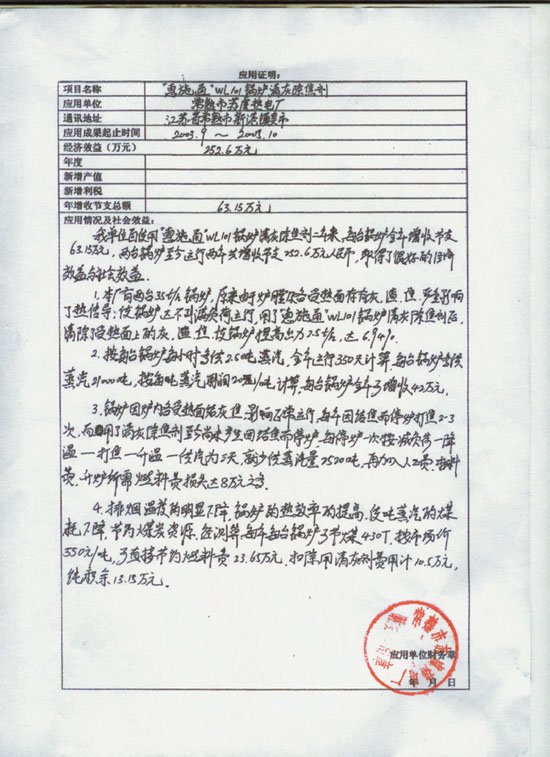 应用证明:
项目名称 "惠施通"WL101锅炉清灰除焦剂
应用单位 常熟市苏虞热电厂
通讯地址 江苏省常熟市新港镇
应用成果起止时间 2003.9 ～ 2005.10
经济效益(万元) 252.6万元
年度
新增产值
新增利税
年增收节支总额 63.15万元
应用情况及社会效益:
我单位自使用"惠施通"WL101锅炉清灰除焦剂二年来,每台锅炉全年增收节支
63.15万元,两台锅炉至今运行两年共增收节支252.6万人民币,取得了很好的经济
效益与社会效益.
1.本厂有两台35t/h锅炉,原来由于炉膛及各受热面存有灰、渣、焦,严重影响
了热传导,使锅炉达不到满负荷运行,用了"惠施通"WL101锅炉清灰除焦剂后,
清除了受热面上的灰、渣、焦,使锅炉提高出力2.5t/h,达6.94%
2.按每台锅炉每小时多供2.5吨蒸汽,全年运行350天计算,每台锅炉多供
蒸汽21000吨,按每吨蒸汽利润20元/吨计算,每台锅炉全年可增收42万元.
3.锅炉因炉内各受热面结灰焦,影响正常运行,每年因结焦而停炉打焦2-3
次,而用了清灰除焦剂至今尚未产生因结焦而停炉,每停炉一次按减负荷—降
温—打焦—升温—供汽为三天,就少供蒸汽量2520吨,再加人工费、材料
费、升炉所需燃料费损失达8万元之多.
4.排烟温度的明显下降,锅炉的热效率的提高,使吨蒸汽的煤
耗下降,节约煤炭资源,经测算,每年每台锅炉可节煤430T,按市场价
550元/吨,可直接节约燃料费23.65万元,扣除用清灰剂费用计10.5万元,
纯获余13.15万元.
应用单位财务章
年 月 日